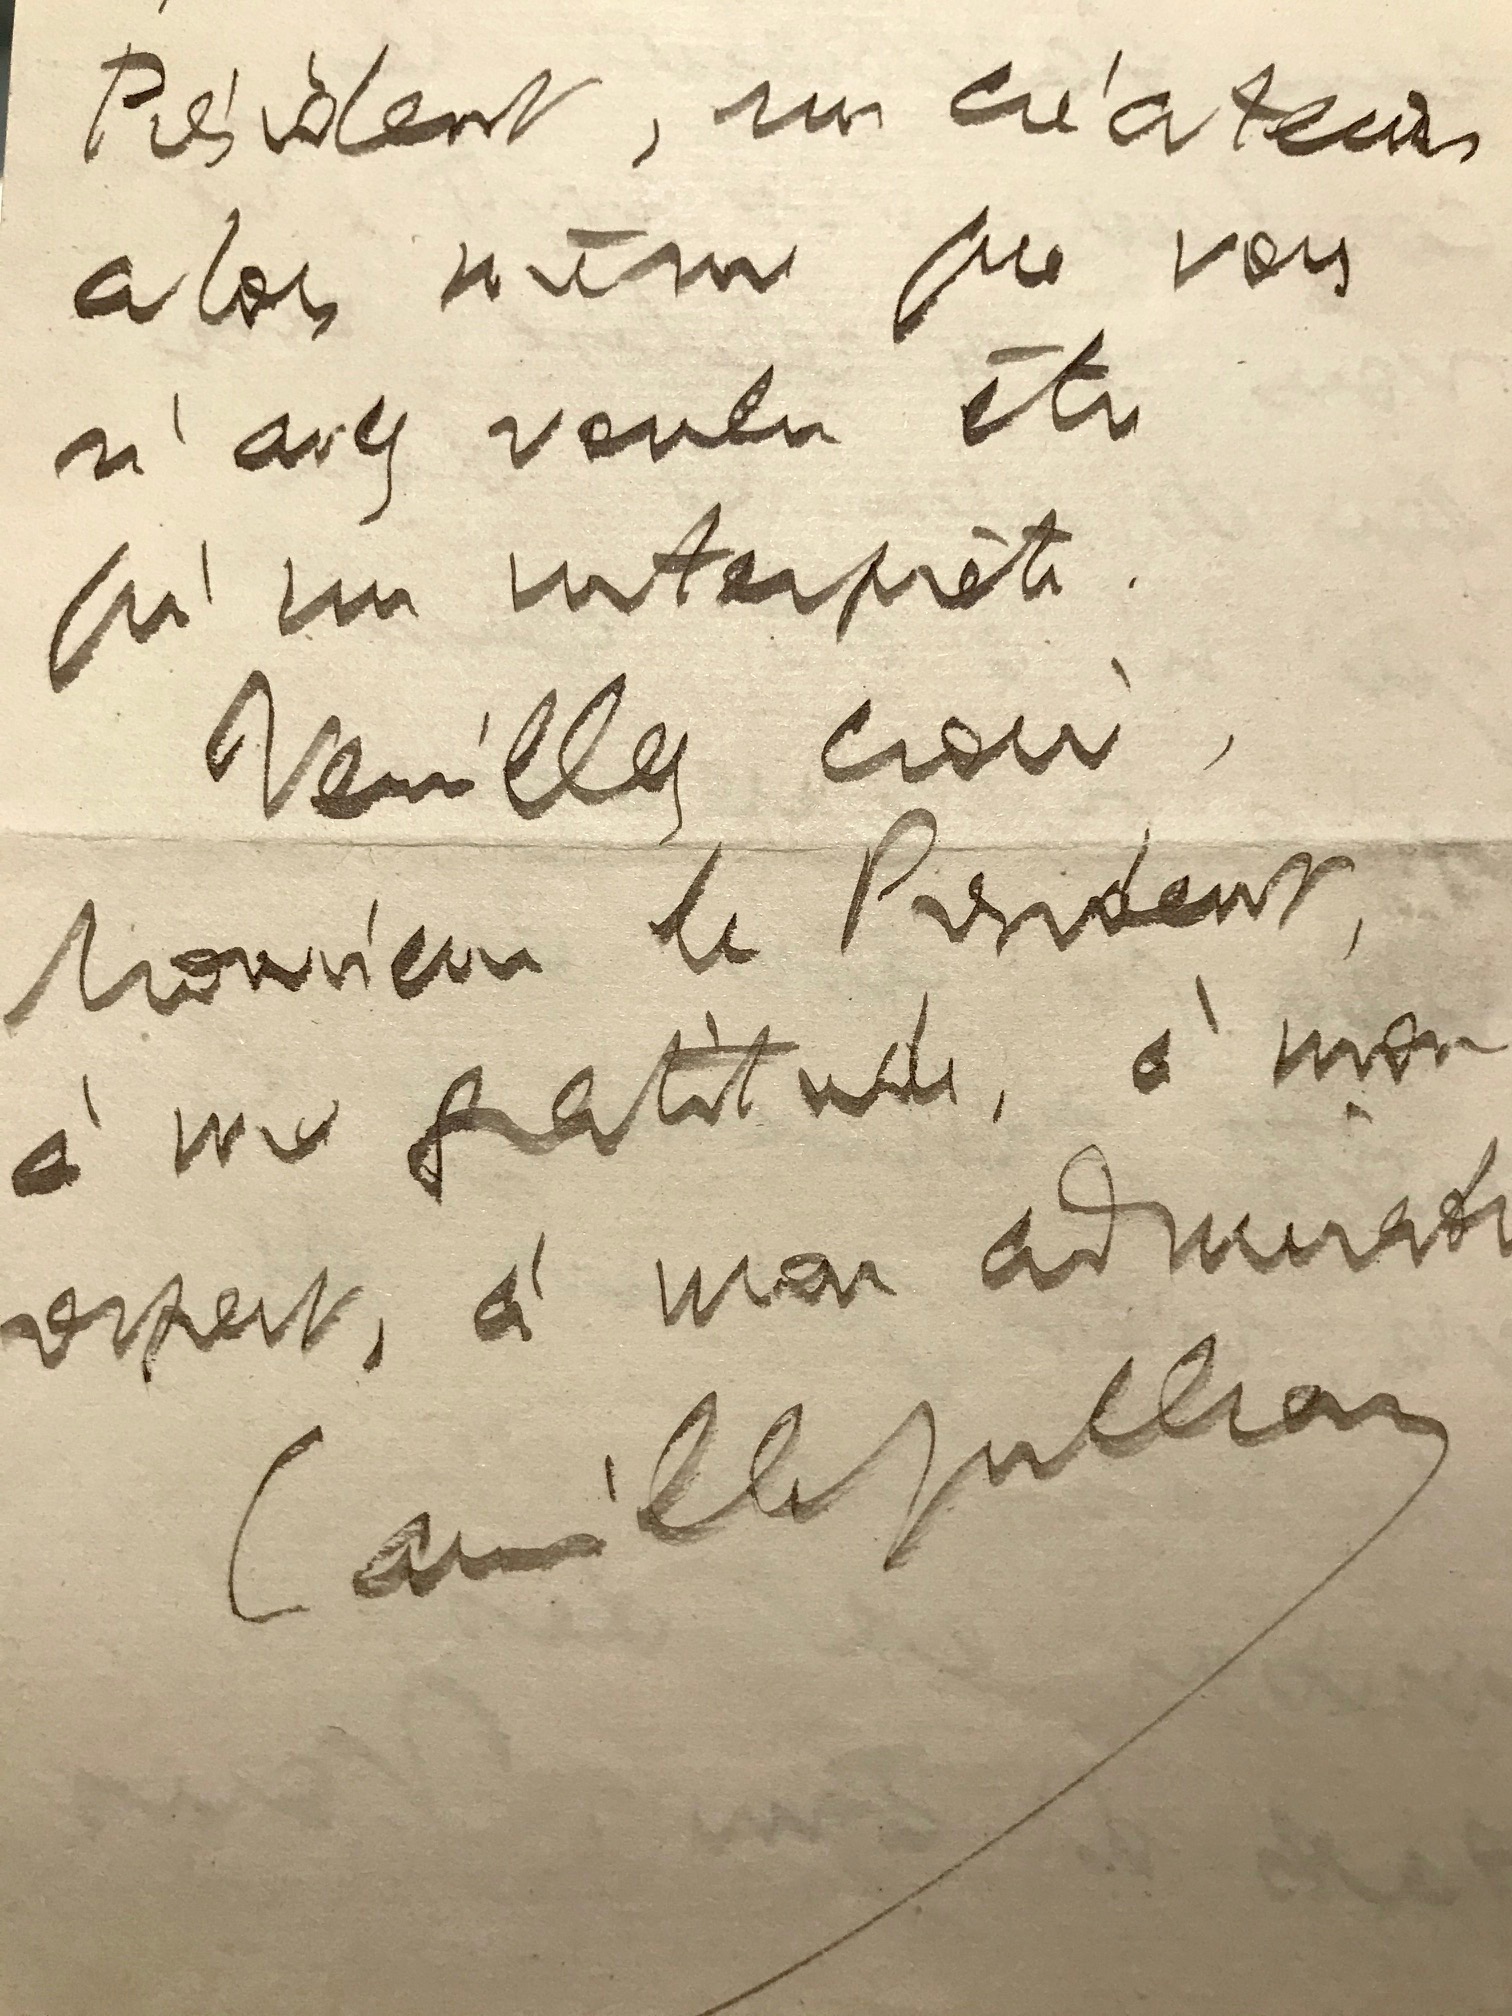 Président, un créateur
alors même que vous
n'avez voulu être
qu'un interprète.
Veuillez croire,
Monsieur le Président,
à ma gratitude, à mon
respect, à mon admirati
Camille Jullian